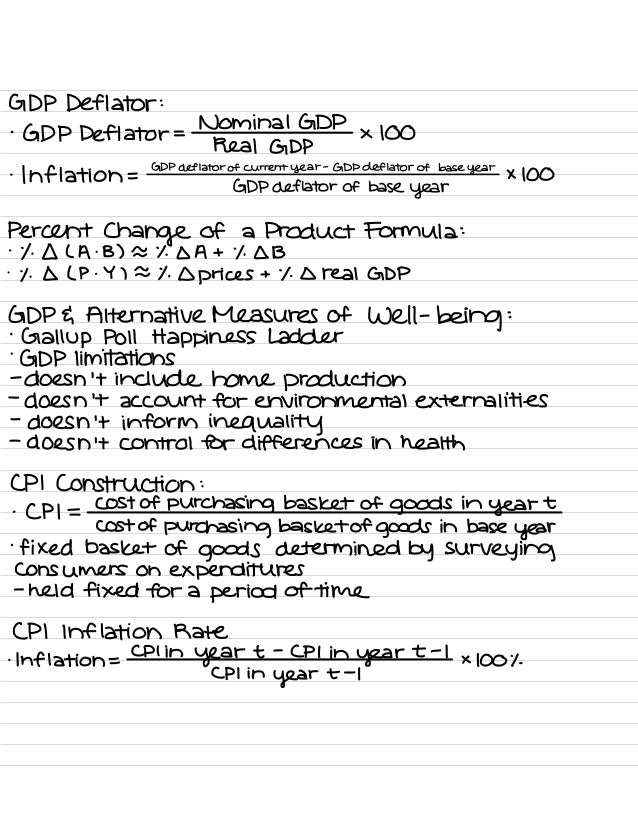 GDP Deflator:
· GDP Deflator = Nominal GDP / Real GDP × 100
· Inflation = GDP deflator of current year - GDP deflator of base year / GDP deflator of base year × 100
Percent Change of a Product Formula:
· % Δ (A·B) ≈ % ΔA + % ΔB
· % Δ (P·Y) ≈ % Δ prices + % Δ real GDP
GDP & Alternative Measures of Well-being:
· Gallup Poll Happiness Ladder
· GDP limitations
- doesn't include home production
- doesn't account for environmental externalities
- doesn't inform inequality
- doesn't control for differences in health
CPI Construction:
· CPI = cost of purchasing basket of goods in year t / cost of purchasing basket of goods in base year
· fixed basket of goods determined by surveying
consumers on expenditures
- held fixed for a period of time
CPI Inflation Rate
· Inflation = CPI in year t - CPI in year t-1 / CPI in year t-1 × 100%